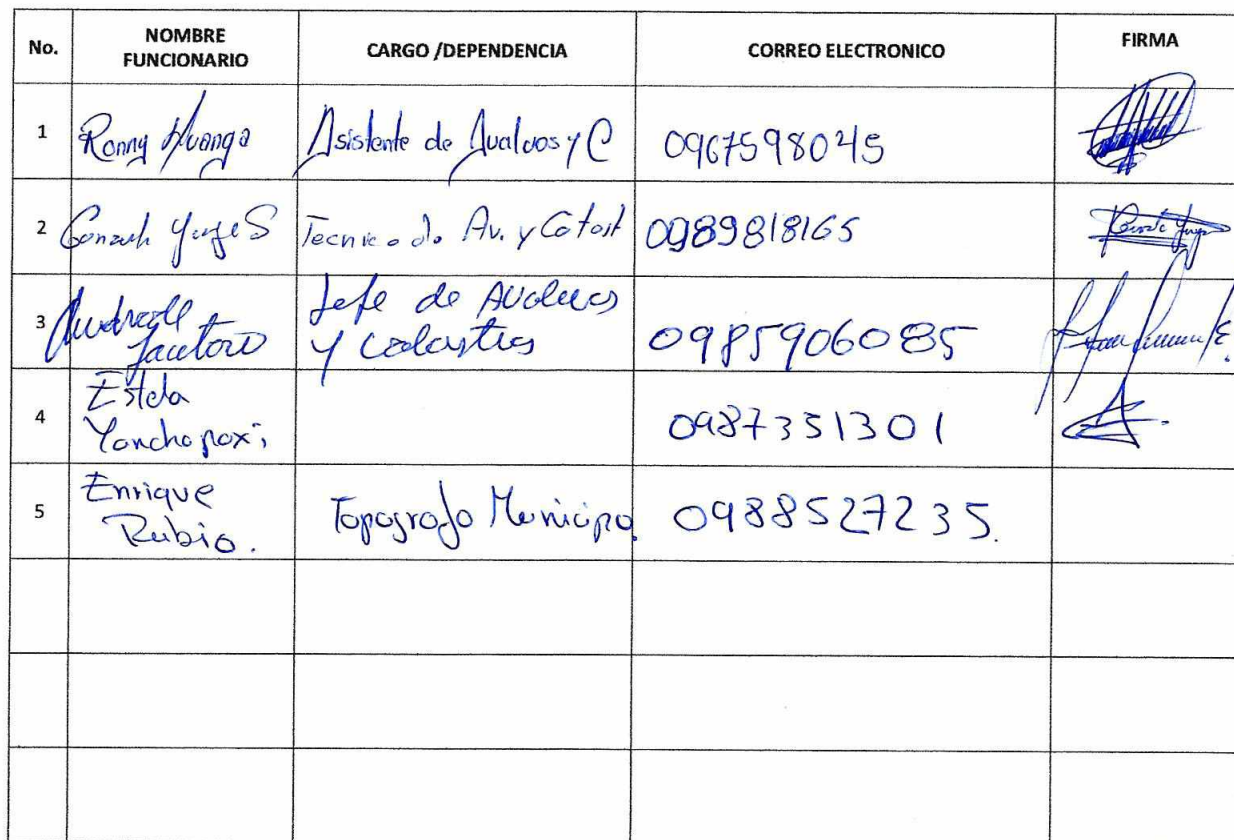 No. NOMBRE FUNCIONARIO CARGO /DEPENDENCIA CORREO ELECTRONICO FIRMA
1 Ronny Huanga Asistente de Avaluos y C 0967598045
2 Tecnico de Av. y Catast 0989818165
3 Jefe de Avaluos
y catastros 0985906085
4 Estela
Yanchapaxi 0987351301
5 Enrique
Rubio. Topografo Municipa 0988527235.